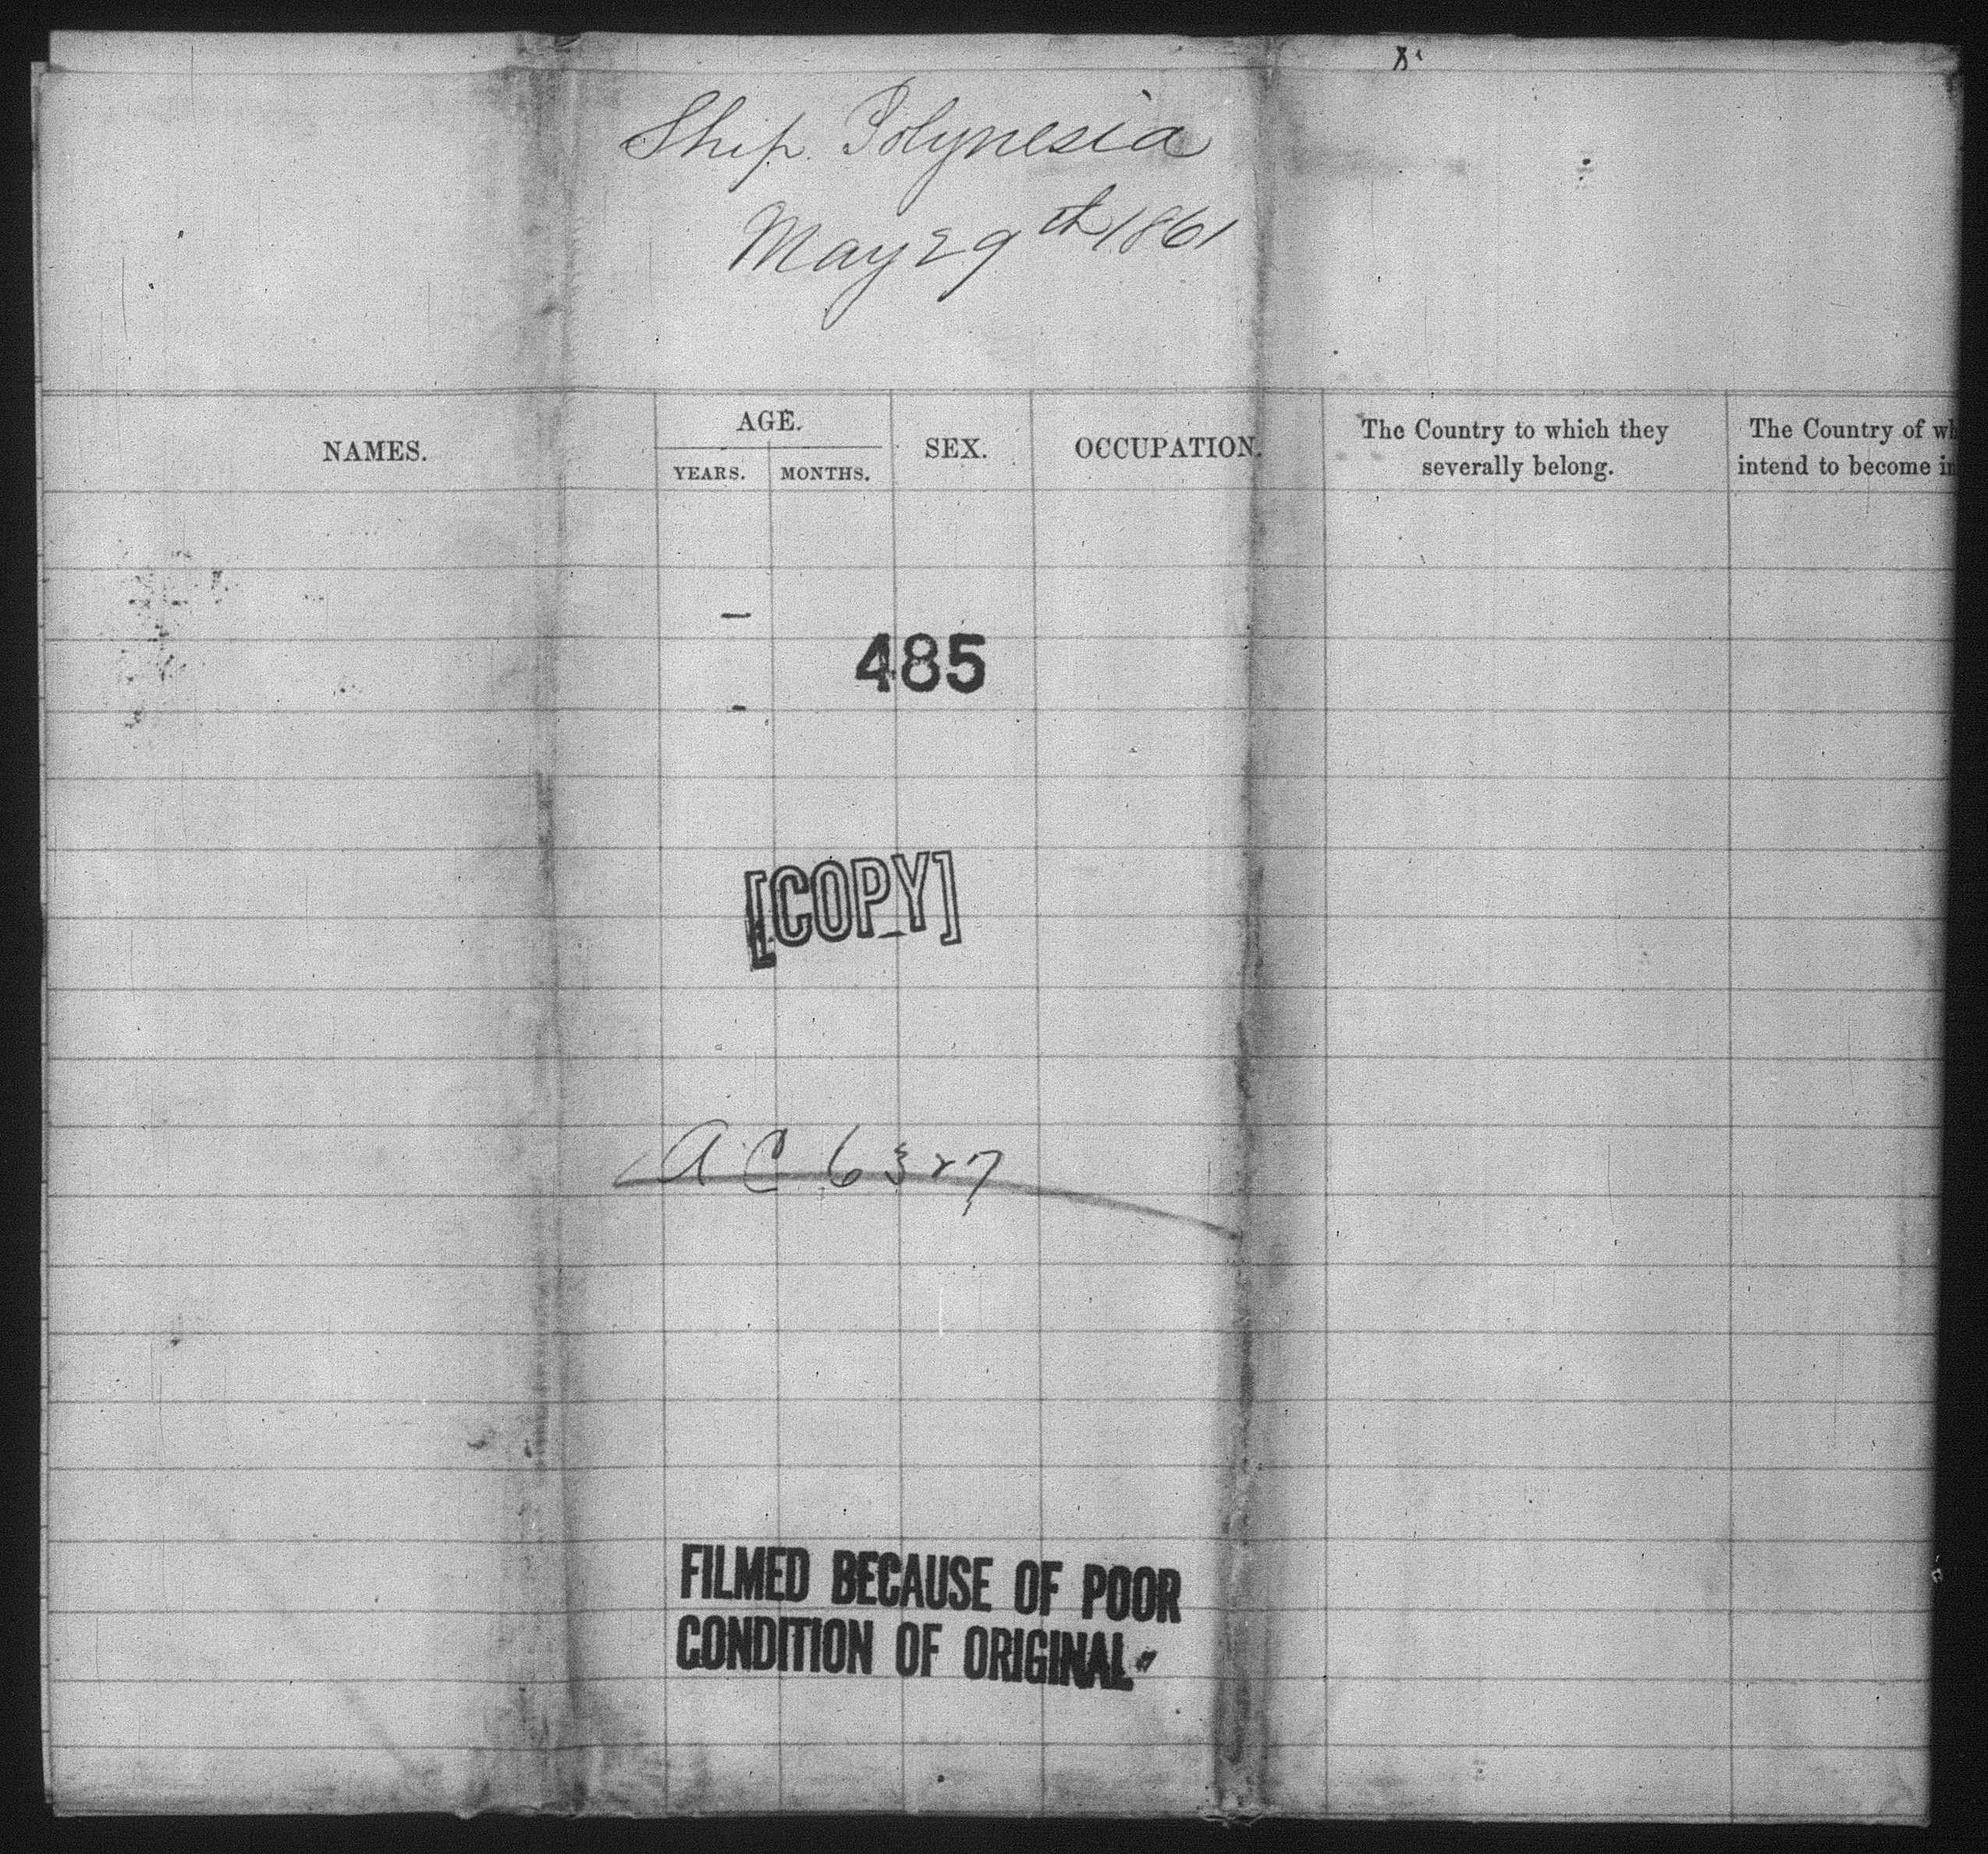 Ship Polynesia
May 29th 1861
NAMES.
AGE.
YEARS. MONTHS.
SEX.
OCCUPATION.
The Country to which they
severally belong.
The Country of wh
intend to become in
485
[COPY]
AC 6327
FILMED BECAUSE OF POOR
CONDITION OF ORIGINAL